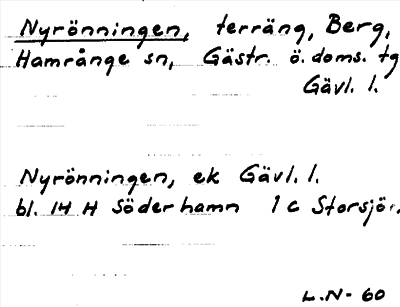 Nyrönningen, terräng, Berg,
Hamrånge sn, Gästr. ö. doms. tg
Gävl. l.
Nyrönningen, ek Gävl. l.
bl. 14 H Söderhamn 1 c Storsjö.
L.N- 60